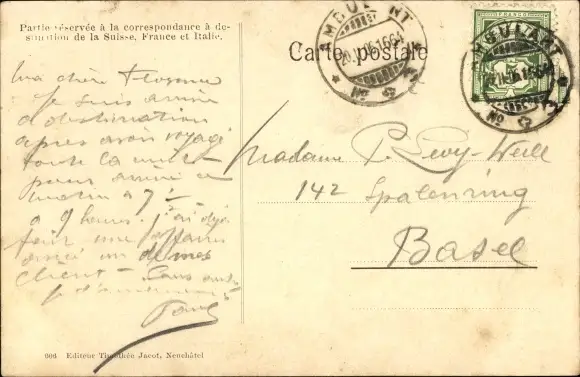 Partie réservée à la correspondance à destination de la Suisse, France et Italie.
Carte postale
AMBULANT
No
AMBULANT
No
FRANCO
Ma chère
Je suis arrivé
à destination
après avoir voyagé
toute la nuit
pour arrivé ce
matin à 7 1/2
à 9 heures. j'ai déjà
fait une affaire
avec un de mes
client - Sans autre
Paul
Madame P. Levy-Weill
142 Spalenring
Basel
606 Editeur Timothée Jacot, Neuchâtel